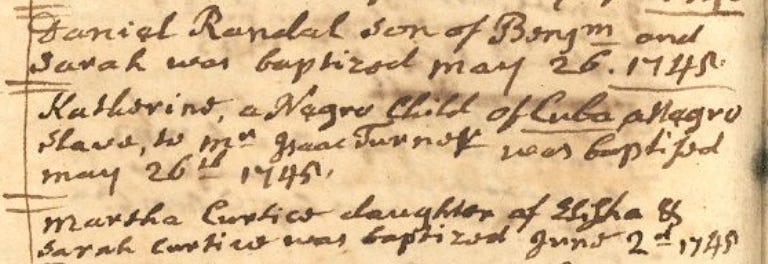 Daniel Randal son of Benjm and
Sarah was baptized may 26. 1745.
Katherine, a Negro Child of Cuba a Negro
slave, to mr Isaac Turner was baptised
may 26th 1745.
Martha Curtice daughter of Elisha &
Sarah Curtice was baptized June 2d 1745